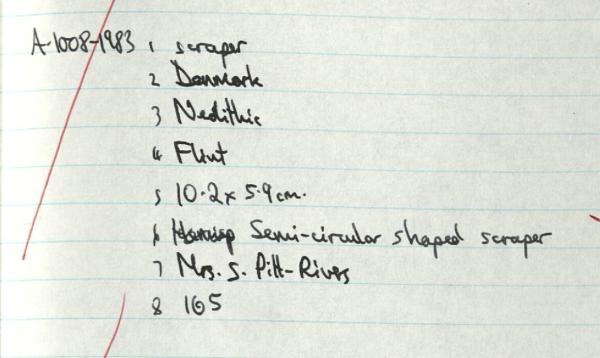 A.1008-1983 1 scraper
2 Denmark
3 Neolithic
4 Flint
5 10.2 x 5.9 cm.
6 Semi-circular shaped scraper
7 Mrs. S. Pitt-Rivers
8 165